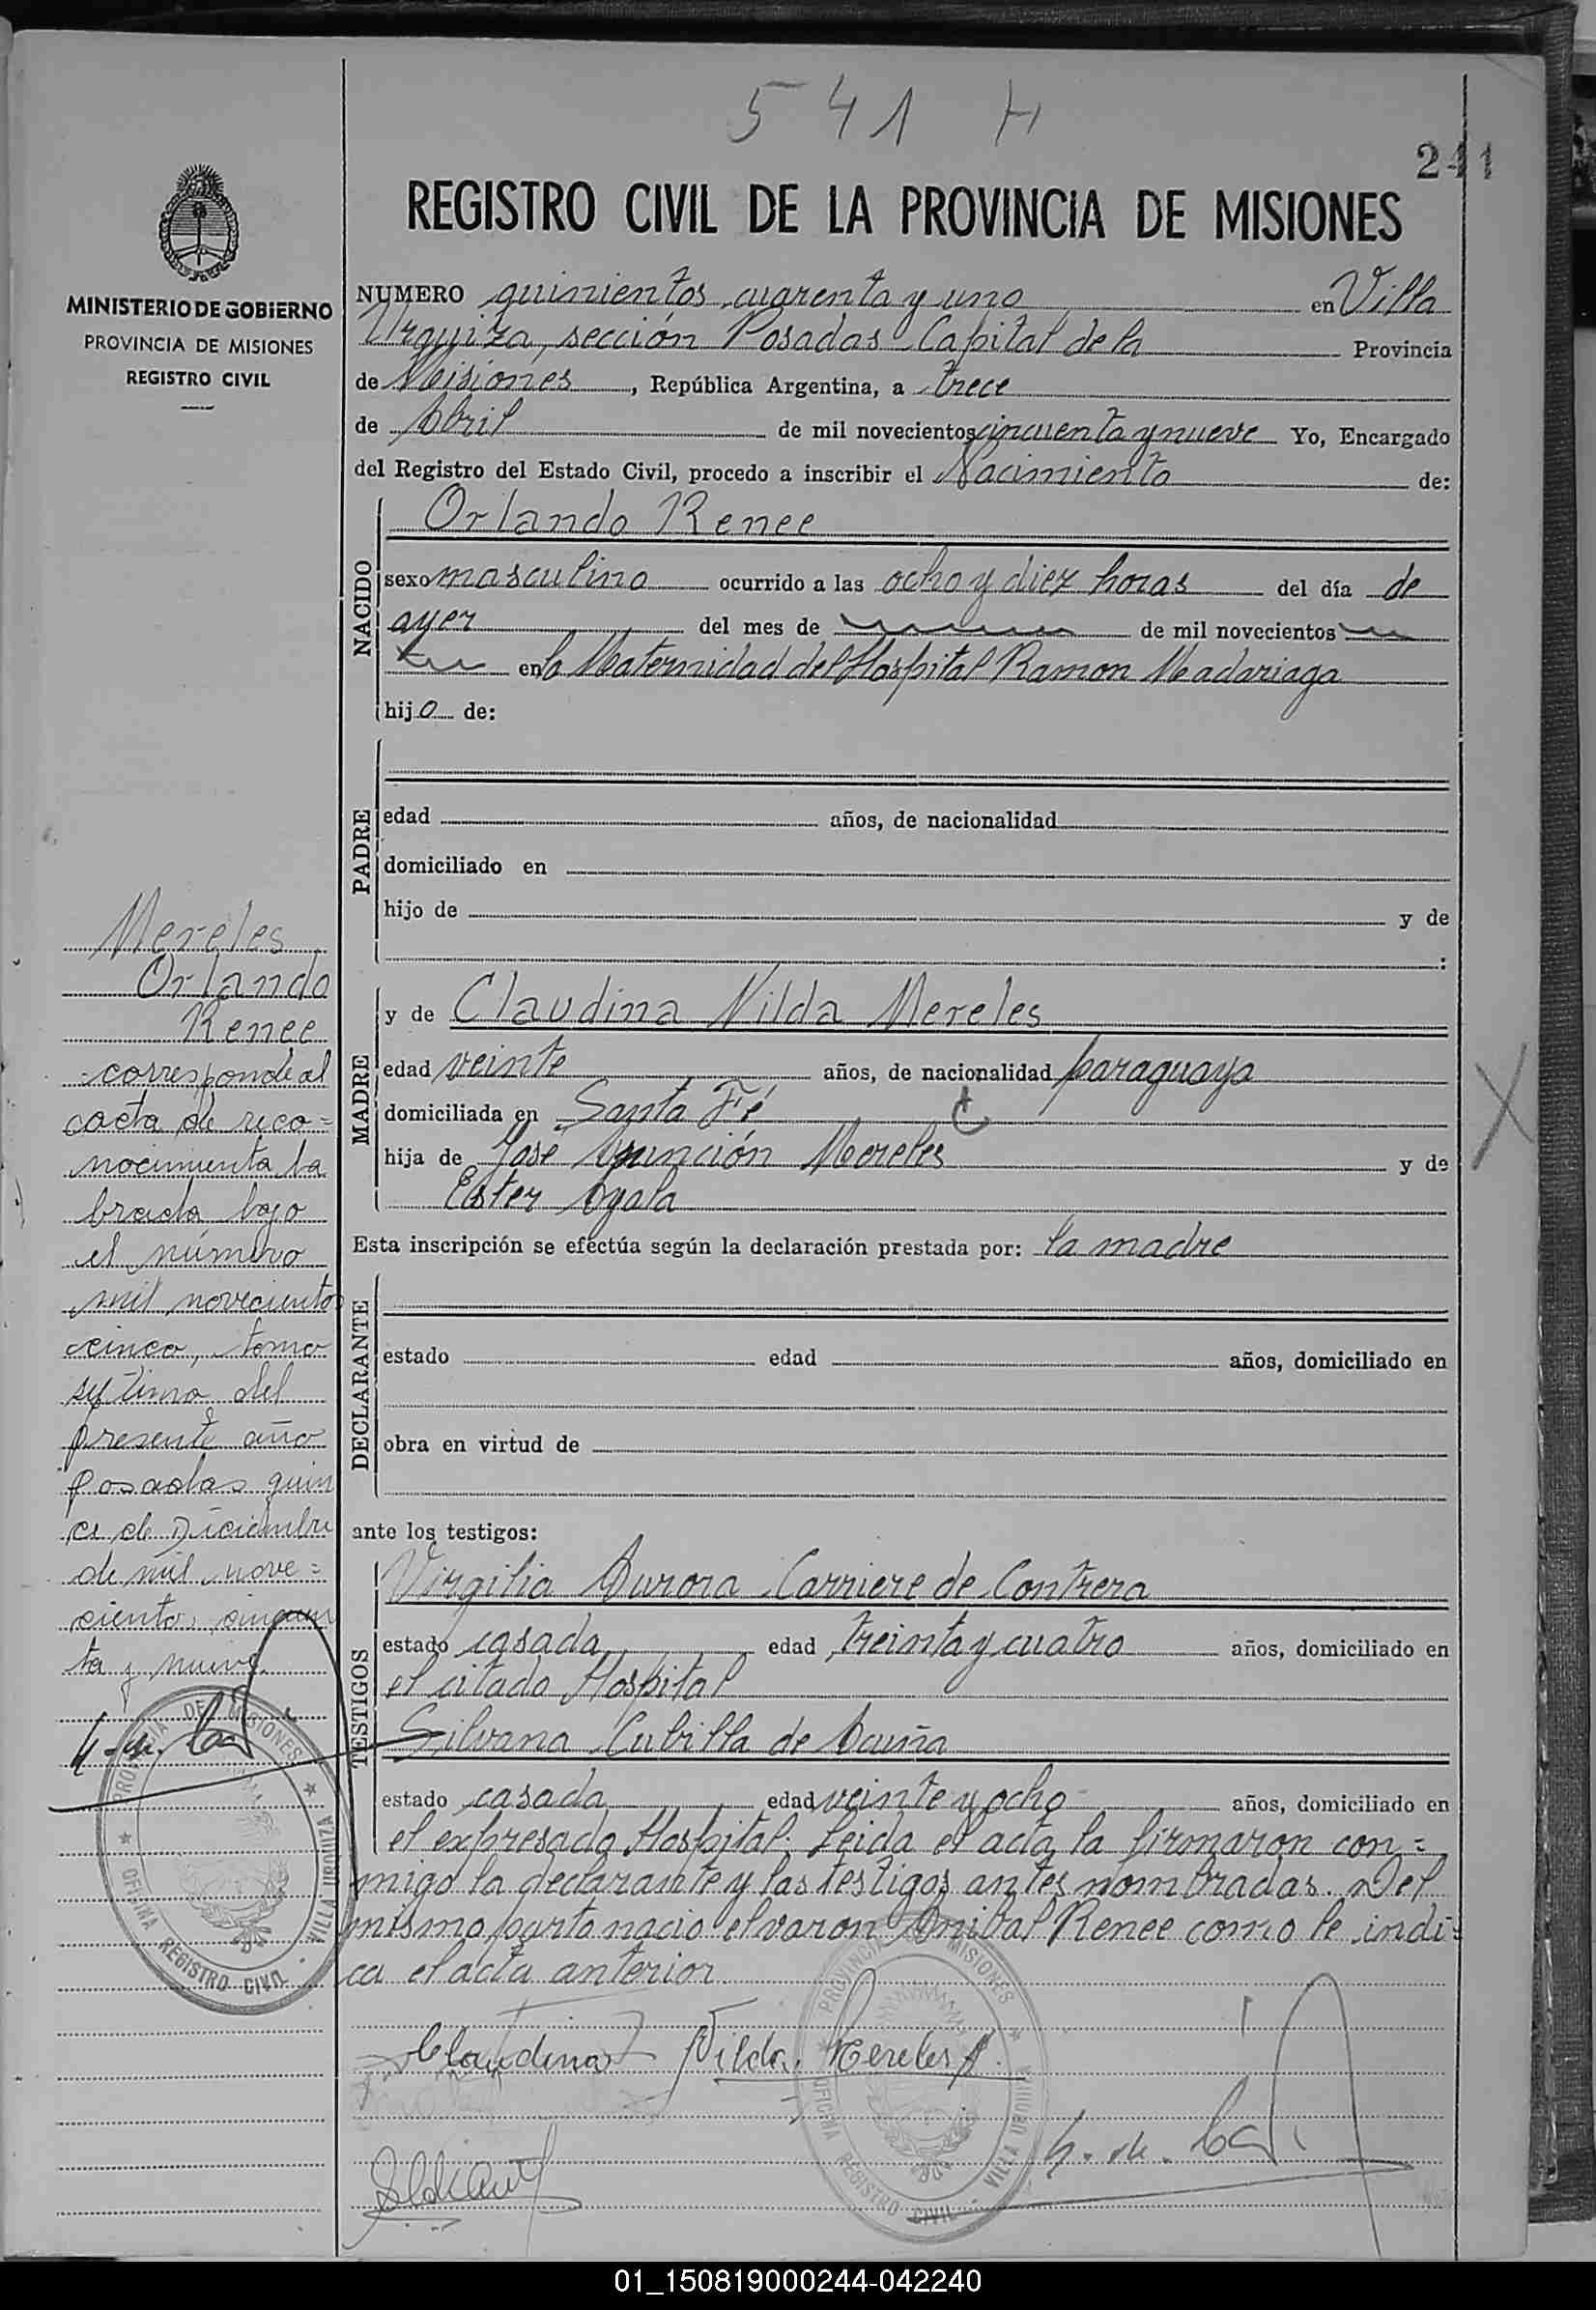 541 H
241
REGISTRO CIVIL DE LA PROVINCIA DE MISIONES
MINISTERIO DE GOBIERNO
PROVINCIA DE MISIONES
REGISTRO CIVIL
NUMERO quinientos cuarenta y uno en Villa
Urquiza, sección Posadas Capital de la Provincia
de Misiones, República Argentina, a trece
de Abril de mil novecientos cincuenta y nueve Yo, Encargado
del Registro del Estado Civil, procedo a inscribir el Nacimiento de:
NACIDO
Orlando Renee
sexo masculino ocurrido a las ocho y diez horas del día de
ayer del mes de de mil novecientos
en la Maternidad del Hospital Ramon Madariaga
hijo de:
PADRE
edad años, de nacionalidad
domiciliado en
hijo de y de
:
MADRE
y de Claudina Nilda Mereles
edad veinte años, de nacionalidad paraguaya
domiciliada en Santa Fé
hija de José Asunción Mereles y de
Ester Ayala
X
Esta inscripción se efectúa según la declaración prestada por: la madre
DECLARANTE
estado edad años, domiciliado en
obra en virtud de
ante los testigos:
TESTIGOS
Virgilia Aurora Carriere de Contrera
estado casada edad treinta y cuatro años, domiciliado en
el citado Hospital
Silvana Cubilla de Acuña
estado casada edad veinte y ocho años, domiciliado en
el expresado Hospital. Leida el acta la firmaron con=
migo la declarante y las testigos antes nombradas. Del
mismo parto nacio el varon Anibal Renee como le indi=
ca el acta anterior
Claudina Nilda Mereles A.
Mereles
Orlando
Renee
corresponde al
acta de reco=
nocimiento la
brada bajo
el número
mil noveciento
cinco, tomo
septimo del
presente año
Posadas quin
ce de Diciembre
de mil nove=
ciento cincuen
ta y nueve
PROVINCIA DE MISIONES
OFICINA REGISTRO CIVIL VILLA URQUIZA
PROVINCIA DE MISIONES
OFICINA REGISTRO CIVIL VILLA URQUIZA
01_150819000244-042240